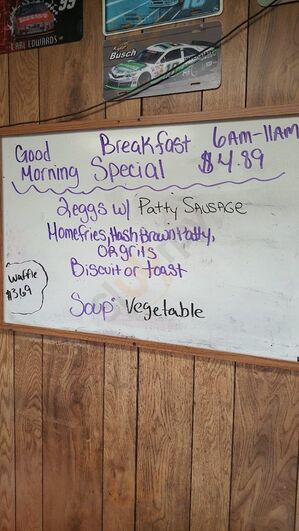 99
CARL EDWARDS
Kyle
Busch
Good Breakfast 6AM-11AM
Morning Special $4.89
2eggs w/ Patty SAUSAGE
Homefries, Hash Brown Patty,
OR grits
Biscuit or toast
Waffle
$3.69
Soup: Vegetable